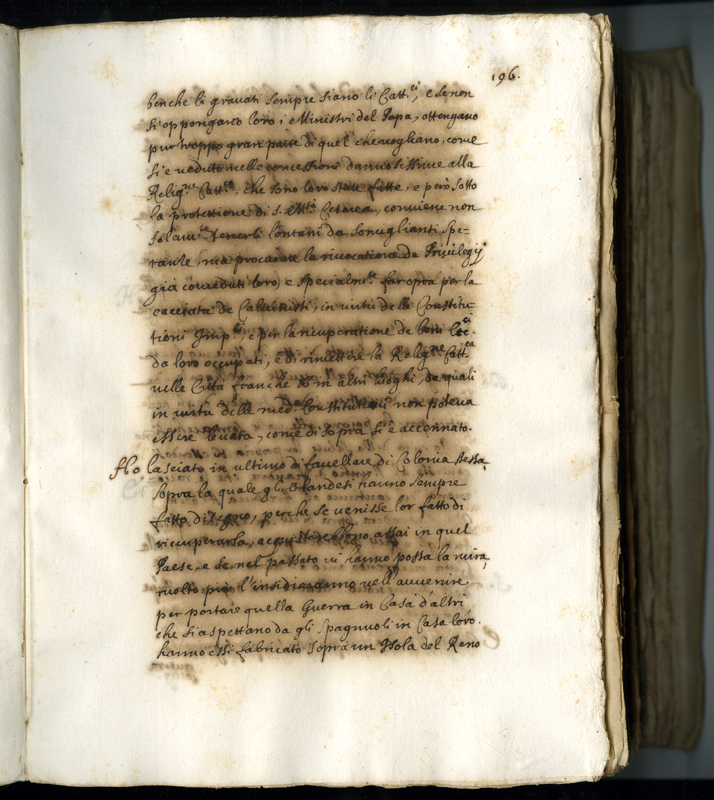 196.
benche li gravati sempre siano li Catt.ci, e se non
si oppongano loro i Ministri del Papa, ottengano
pur troppo gran parte di quel che vogliano, come
si è veduto nelle concessioni dannosissime alla
Relig.ne Catt.ca, che sono loro state fatte, e però sotto
la protettione di S. M.tà Cesarea, conviene non
solam.te tenerli lontani da somiglianti spe-
ranze mà procurare la rivocatione de Privilegij
già conceduti loro, e specialm.te far opra per la
cacciata de Calvinisti, in virtù delle Constitu-
tioni Imp.li, e per la ricuperatione de beni Ecc.ci
da loro occupati, e di rimettere la Relig.ne Catt.ca
nelle Città franche et in altri luoghi, da quali
in virtù delle med.e Constitutioni non poteva
essere levata, come di sopra si è accennato.
Ho lasciato in ultimo di favellare di Colonia stessa,
sopra la quale gli Olandesi hanno sempre
fatto disegno, perche se venisse lor fatto di
ricuperarla, acquistarebbono assai in quel
Paese, e se nel passato vi hanno posta la mira,
molto più l'insidiaranno nell'auvenire
per portare quella Guerra in Casa d'altri,
che si aspettano da gli Spagnuoli in Casa loro.
hanno essi fabricato sopra un Isola del Reno